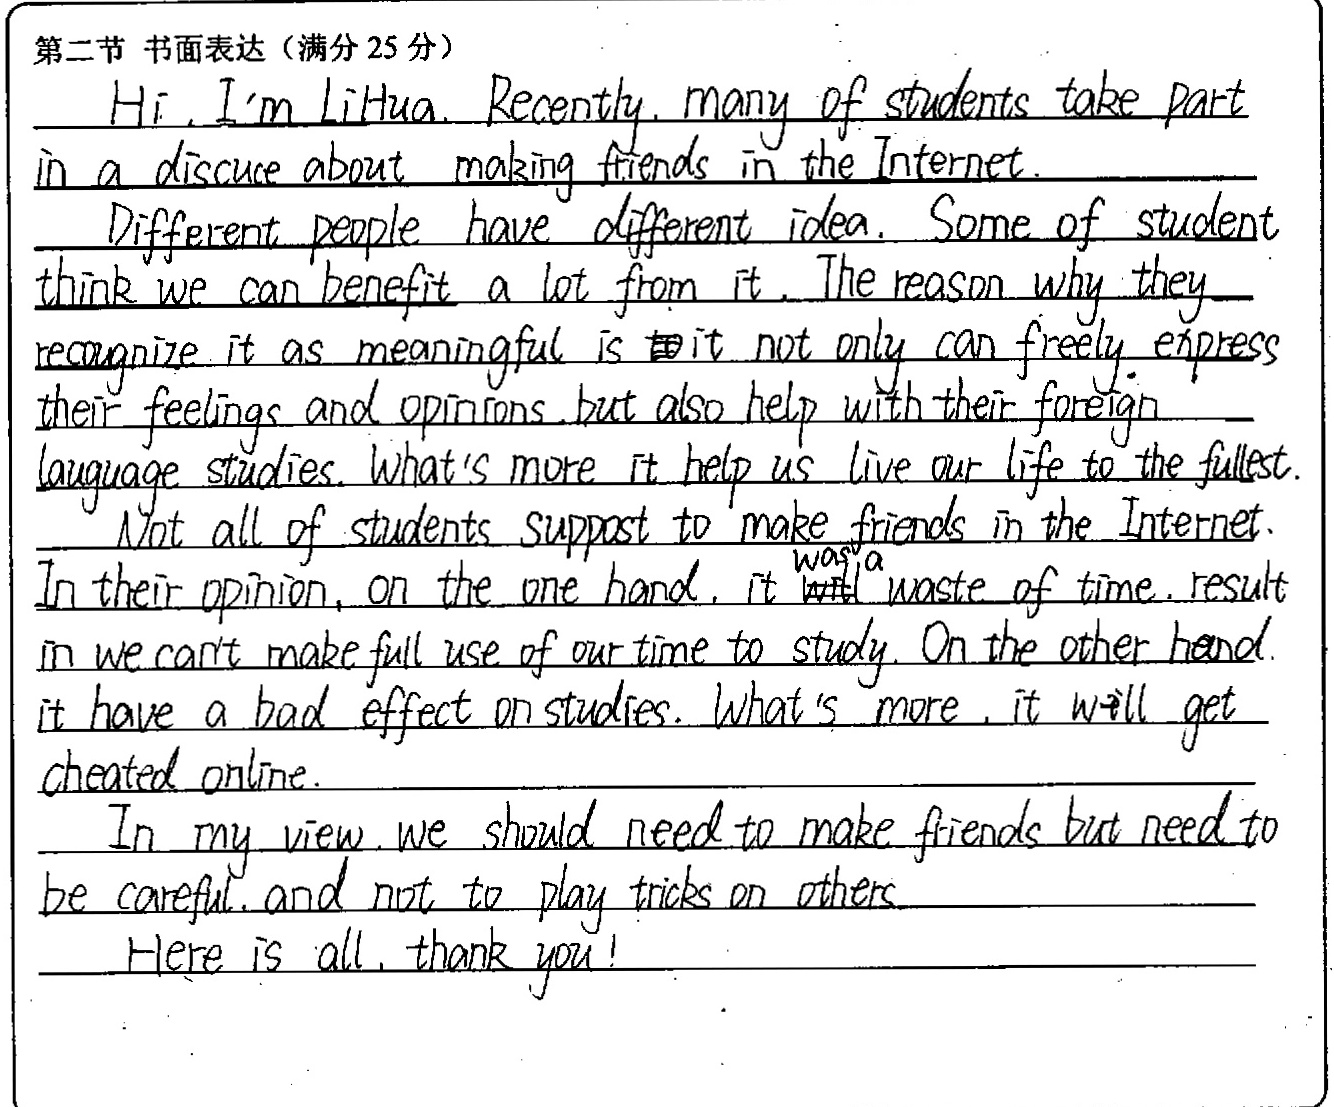 第二节 书面表达（满分 25 分）
Hi, I'm LiHua. Recently, many of students take part
in a discuce about making friends in the Internet.
Different people have different idea. Some of student
think we can benefit a lot from it. The reason why they
recougnize it as meaningful is it not only can freely express
their feelings and opinions, but also help with their foreign
lauguage studies. What's more it help us live our life to the fullest.
Not all of students suppost to make friends in the Internet.
In their opinion, on the one hand, it was a waste of time, result
in we can't make full use of our time to study. On the other hand,
it have a bad effect on studies. What's more, it will get
cheated online.
In my view, we should need to make friends but need to
be careful, and not to play tricks on others
Here is all, thank you!